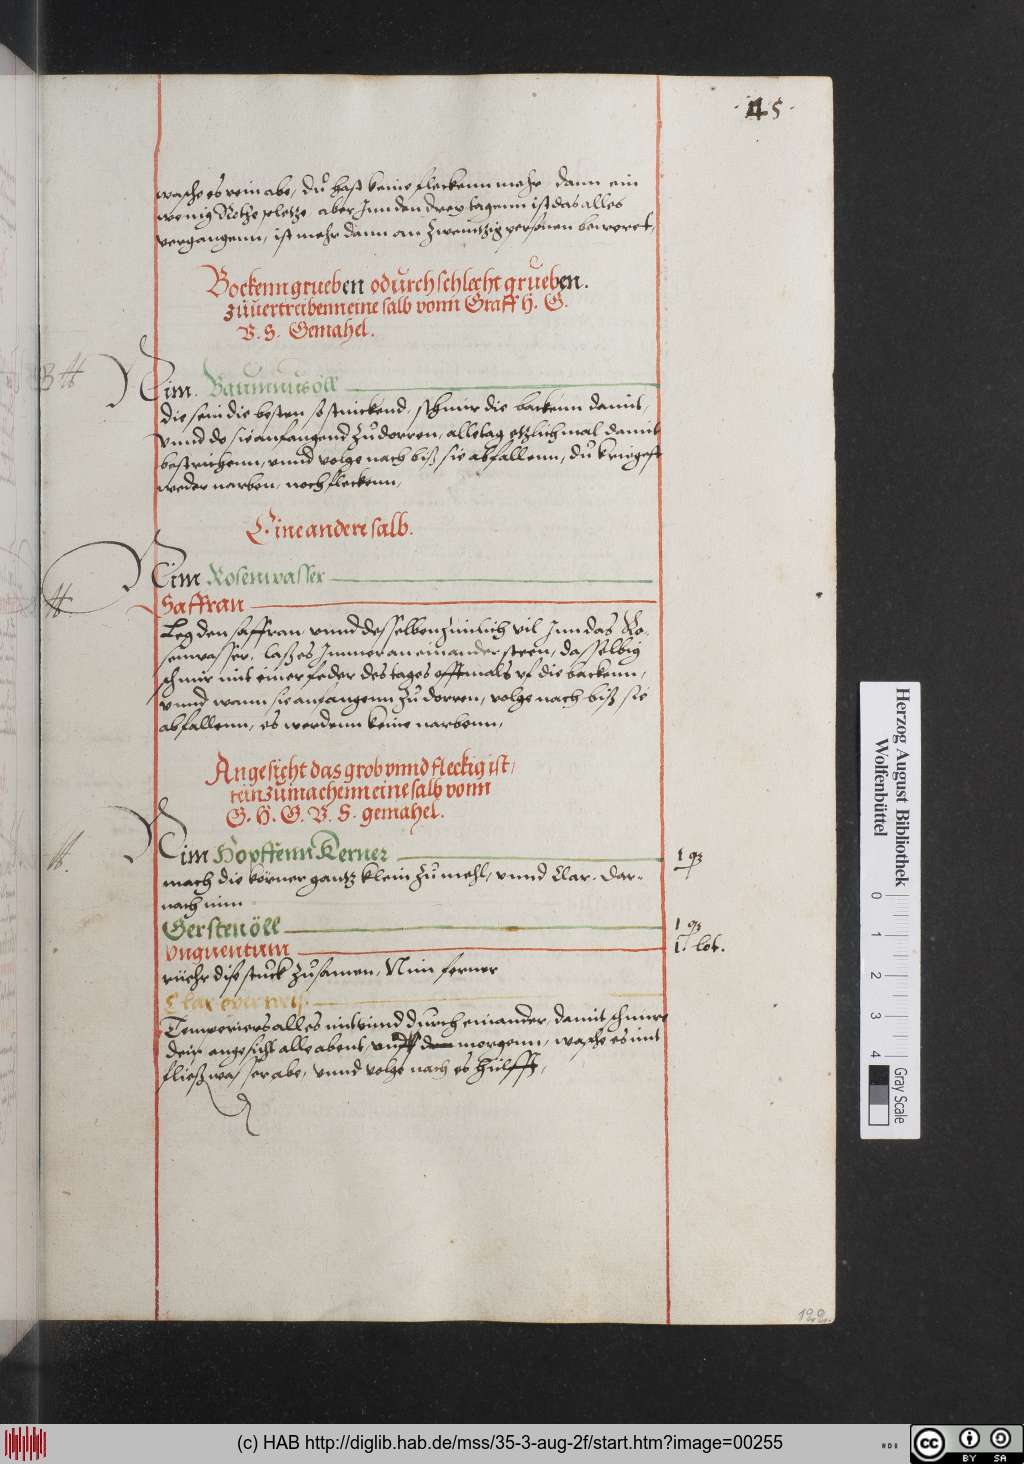 · 45 ·
wasche es rein abe, du hast keine fleckenn mehr dann ein
wenig Rothe pletze, aber Inn den dreÿ tagenn ist das alles
vergangenn, ist mehr dann an Zwentzig personen bewret,
Bockenngrueben odurchschlecht grueben.
züuertreibenn eine salb vonn Graff H. G.
V. S. Gemahel.
Nim. Baumnusöll
die sein die besten so stinckend, schmir die backenn damit,
vnnd do sie anfangend zu dorren, alle tag etzlich mal damit
bestrichenn, vnnd volge nach biß sie abfallenn, du kriegest
weder narben, noch fleckenn,
Eine andere salb.
Nim Rosenwasser
Saffran
Leg den saffran, vnnd desselben zimlich vil Inn das Ro,
senwasser, laß es Immer an einander steen, dasselbig
schmir mit einer feder des tages offtmals vf die backenn,
vnnd wann sie anfangenn zu dorren, volge nach biß sie
abfallenn, es werdenn keine narbenn,
Angesicht das grob vnnd fleckig ist,
rein zumachenn eine salb vonn
G. H. G. V. S. gemahel.
Nim Hopffenn Kerner
mach die körner gantz klein zu mehl, vnnd Clar. dar-
nach nim
Gerstenöll
Vnguentum
1 lot.
rüehr dise stuck zusamen, Nim ferner
Clar eÿerweiß.
Temperiers alles mit vnnd durch einander, damit schmire
dein angesicht alle abent, vnd morgenn, wasche es mit
fließwasser abe, vnnd volge nach es hülfft,
122.
Herzog August Bibliothek
Wolfenbüttel
0 1 2 3 4
Gray Scale
(c) HAB http://diglib.hab.de/mss/35-3-aug-2f/start.htm?image=00255
cc BY SA